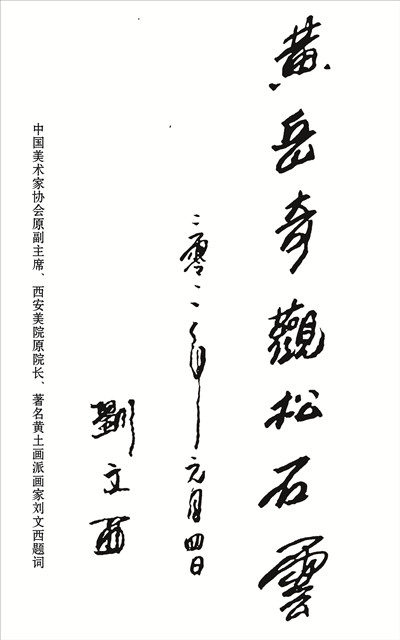 黄岳奇觀松石雲
二零一一年元月四日
劉文西
中国美术家协会原副主席、西安美院原院长、著名黄土画派画家刘文西题词